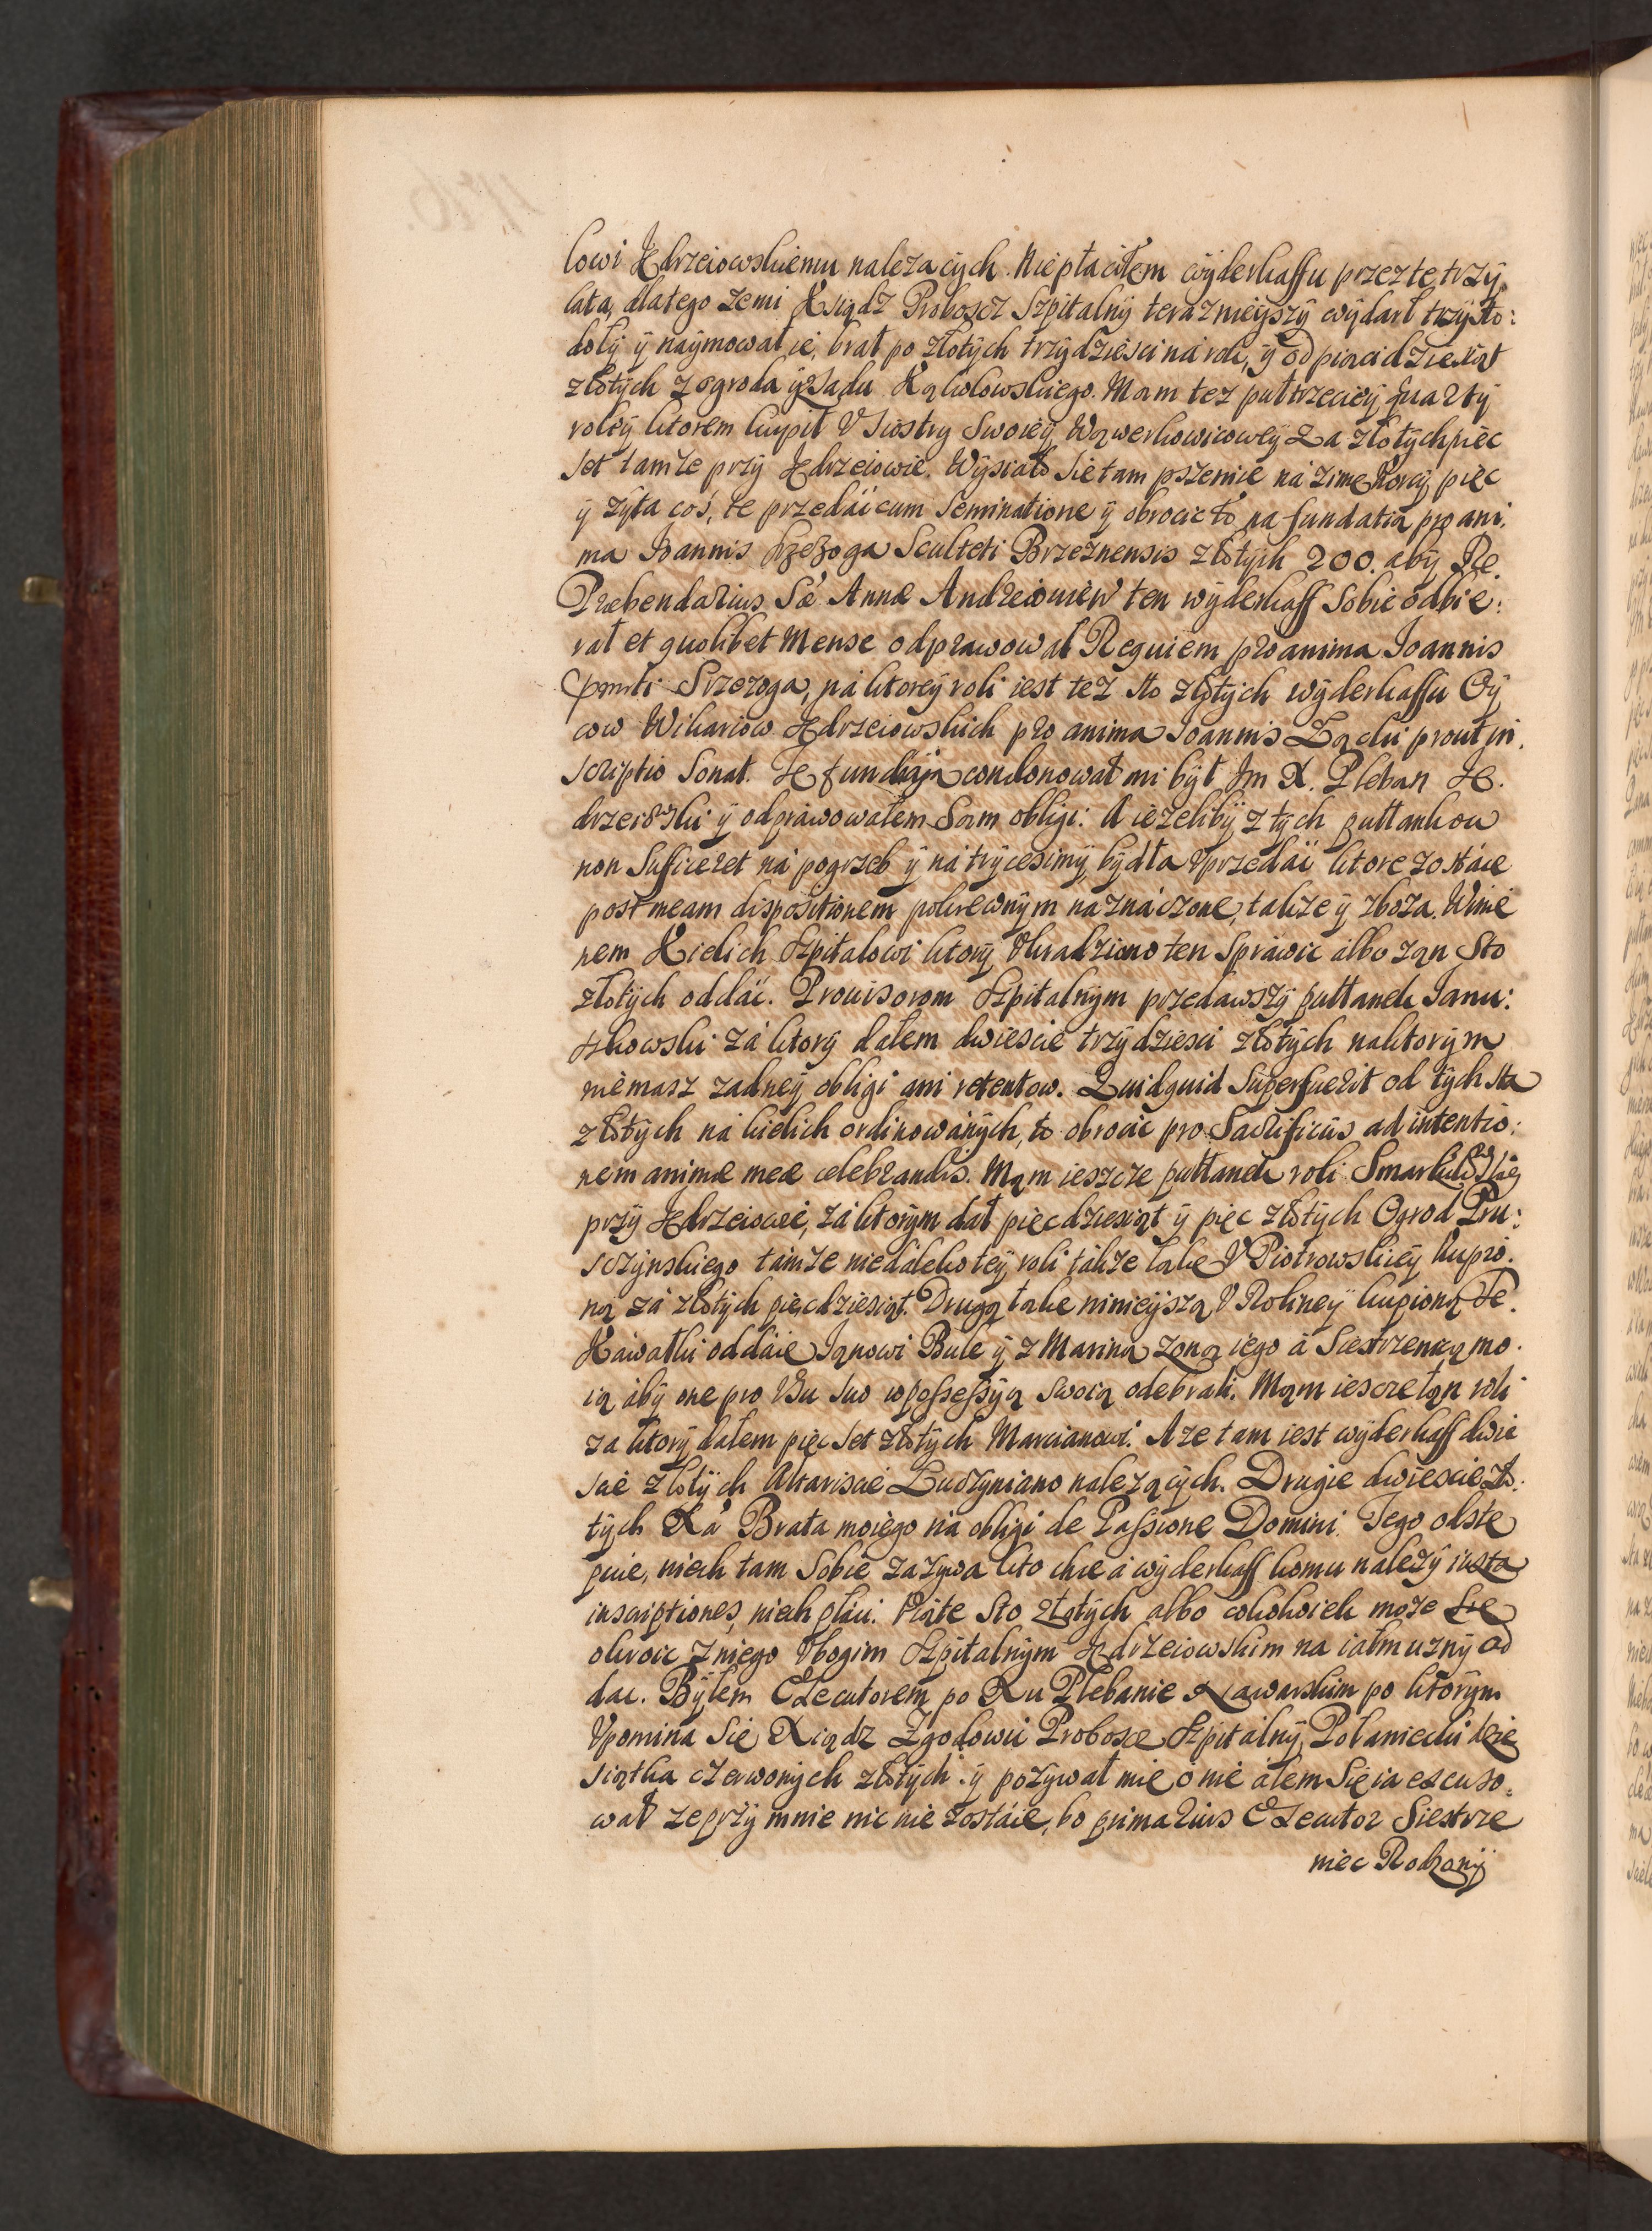 lowi Jędrzeiowskiemu nalezacÿch. Niepłaciłem wÿderkaffu przez te trzÿ
lata, dlatego zemi Xsiądz Proboscz Szpitalnÿ teraznieÿszÿ wÿdarł trzÿ sto:
dołÿ ÿ naÿmował ie, brał po złotÿch trzÿdziesci ná roli, ÿ od piącidziesiąt
złotÿch z ogroda ÿ Sadu Kąkolowskiego. Mam tez pułtrzecieÿ quartÿ
roleÿ ktorem kupił V Siostrÿ Swoieÿ Wąwerkowicoweÿ za złotÿch pięc
set tamze przÿ Jędrzeiowie. Wÿsiało Sie tam pszenice ná zime Korcÿ pięc
ÿ zÿta cos, te przedáć cum Seminatione ÿ obrocic to na fundatią pro ani:
ma Joannis Srzezoga Sculteti Brzeznensis złotÿch 200. abÿ Re.
Præbendarius Sæ Annæ Andreiouiew ten wÿderkaff Sobie odbie:
rał et quolibet Mense odprawował Requiem pro anima Joannis
Srzezoga, ná ktoreÿ roli iest tez sto złotÿch wÿderkaffu Oÿ
cow Wikariow Jędrzeiowskich pro anima Joannis Ządki prout in.
scriptio Sonat. Tę fundatią condonował mi bÿł Jm X. Pleban Ję.
drzeiowski ÿ odprawowałem Sam obligi: A iezelibÿ z tÿch pułłankow
non Sufficeret ná pogrzeb ÿ ná trÿcesimÿ, bÿdła Vprzedáć ktore zostáie
post meam dispositionem pokrewnÿm náznáczone, takze ÿ zboza. Winie
nem Kielich Szpitalowi ktorÿ Vkradziono ten Spráwic álbo zan Sto
złotÿch oddáć. Prouisorom Szpitalnÿm przedawszÿ pułłanek Janu:
szkowski zá ktorÿ dałem dwiescie trzÿdziesci złotÿch na ktorÿm
niemasz zadneÿ obligi ani retentow. Quidquid Superfuerit od tÿch sta
złotÿch ná kielich ordinowánÿch, to obrocic pro Sacrificiis ad intentio:
nem animæ meæ celebrandis. Mam ieszcze pułłanek roli
przÿ Jędrzeiowie, zá ktorÿm dał pięcdziesiąt ÿ pięc złotÿch Ogrod Pru:
sczÿnskiego támze niedáleko teÿ roli tákze łąke V Piotrowskieÿ kupio:
ną zá złotÿch pięcdziesiąt. Drugą łake ninieÿszą V Rolineÿ kupioną Te.
Káwałki oddáie Janowi Bule ÿ z Marina zoną iego á Siestrzenicą mo.
ią ábÿ one pro Vsu suo w possessÿą Swoią odebrali. Mam iescze łan roli
za ktorÿ dałem pięc set złotÿch Marcianowi. A ze tam iest wÿderkaff dwie
scie złotÿch Altariscie Ludzyniano nalezącÿch. Drugie dwiescie zło:
tÿch Xá Brata moiego ná obligi de Passione Domini. Tego obste
puie, niech tam Sobie zazywa kto chce á wÿderkaff komu nalezÿ iusta
inscriptiones, niech płáci. Náte Sto złotÿch albo cokolwiek moze Sie
okroic zniego Vbogim Szpitalnÿm Jędrzeiowskim na iałmuznÿ od
dac. Bÿłem Executorem po Xu Plebanie Xawarskim po ktorÿm
Vpomina Sie Xiądz Zgodowic Probosce Szpitálnÿ Połaniecki dzie
siątka czerwonÿch złotÿch ÿ pozÿwał mie o nie ałem Się ia excuso:
wał ze przÿ mnie nic nie zostáie, bo primarius Executor Siestrze
niec Rodzonÿ